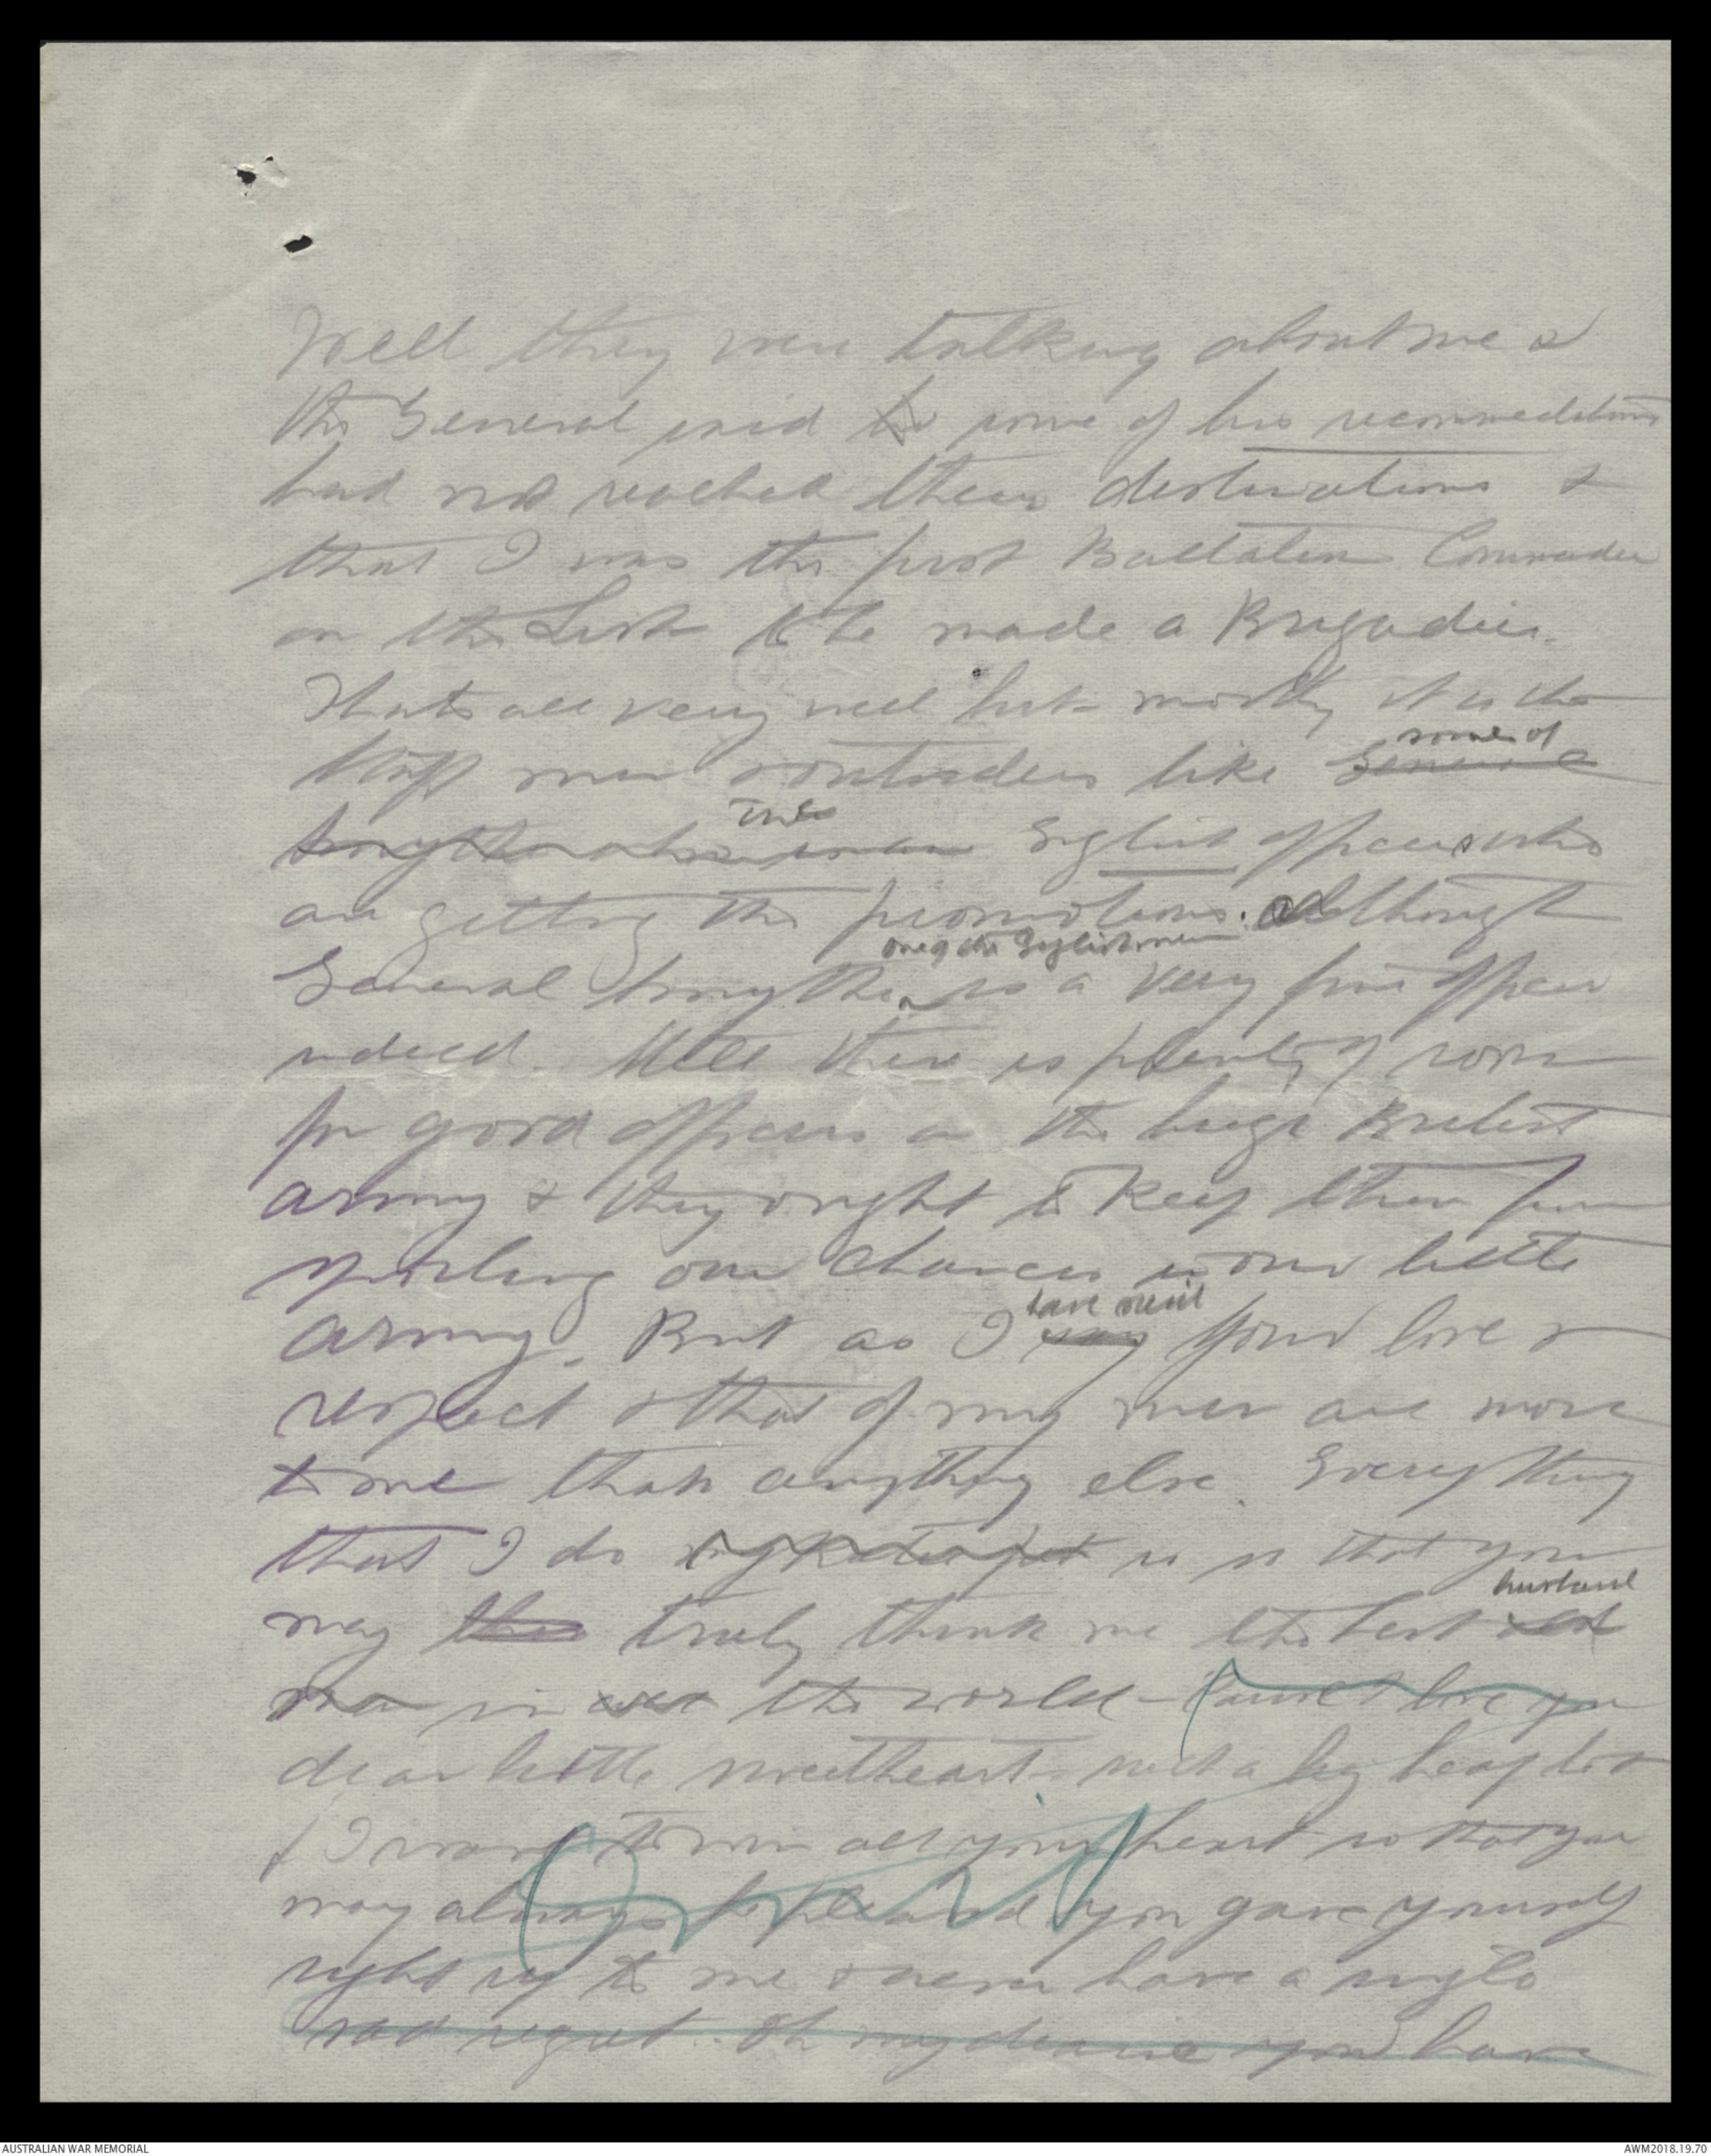 Well they were talking about me &
the General said to some of his recommedations
had not reached their destinations &
that I was the first Battalion Commander
on the List to be made a Brigadier.
Thats all very well but mostly it is the
Staff men & outsiders like General
some of
Smyth who is an English officers who
The
are getting the promotions. Although
one of the Englishmen
General Smyth is a very fine officer
indeed. Well there is plenty of room
for good officers in the huge British
army & they ought to keep them from
spoiling our chances in our little
army. But as I say your love &
have said
respect & that of my men are more
to me than anything else. Everything
that I do is so that you
may truly think me the best
husband
man in the world – cause I love you
dear little sweetheart – such a big heap too
& I want to win all your heart so that you
may always be pleased you gave yourself
right up to me & never have a single
sad regret. Oh my dearie you have
AUSTRALIAN WAR MEMORIAL
AWM2018.19.70